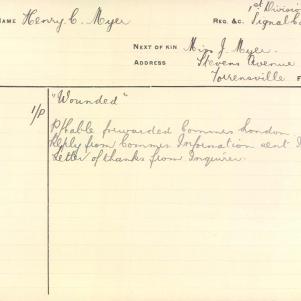 NAME Henry C. Myer
REG. &C. 1st Divisio
Signal Co
NEXT OF KIN Miss J. Myer.
ADDRESS Stevens Avenue
Torrensville F
"Wounded"
1/P P/Pable forwarded Commrs London.
Reply from Commrs Information sent I
Letter of thanks from Inquirer.